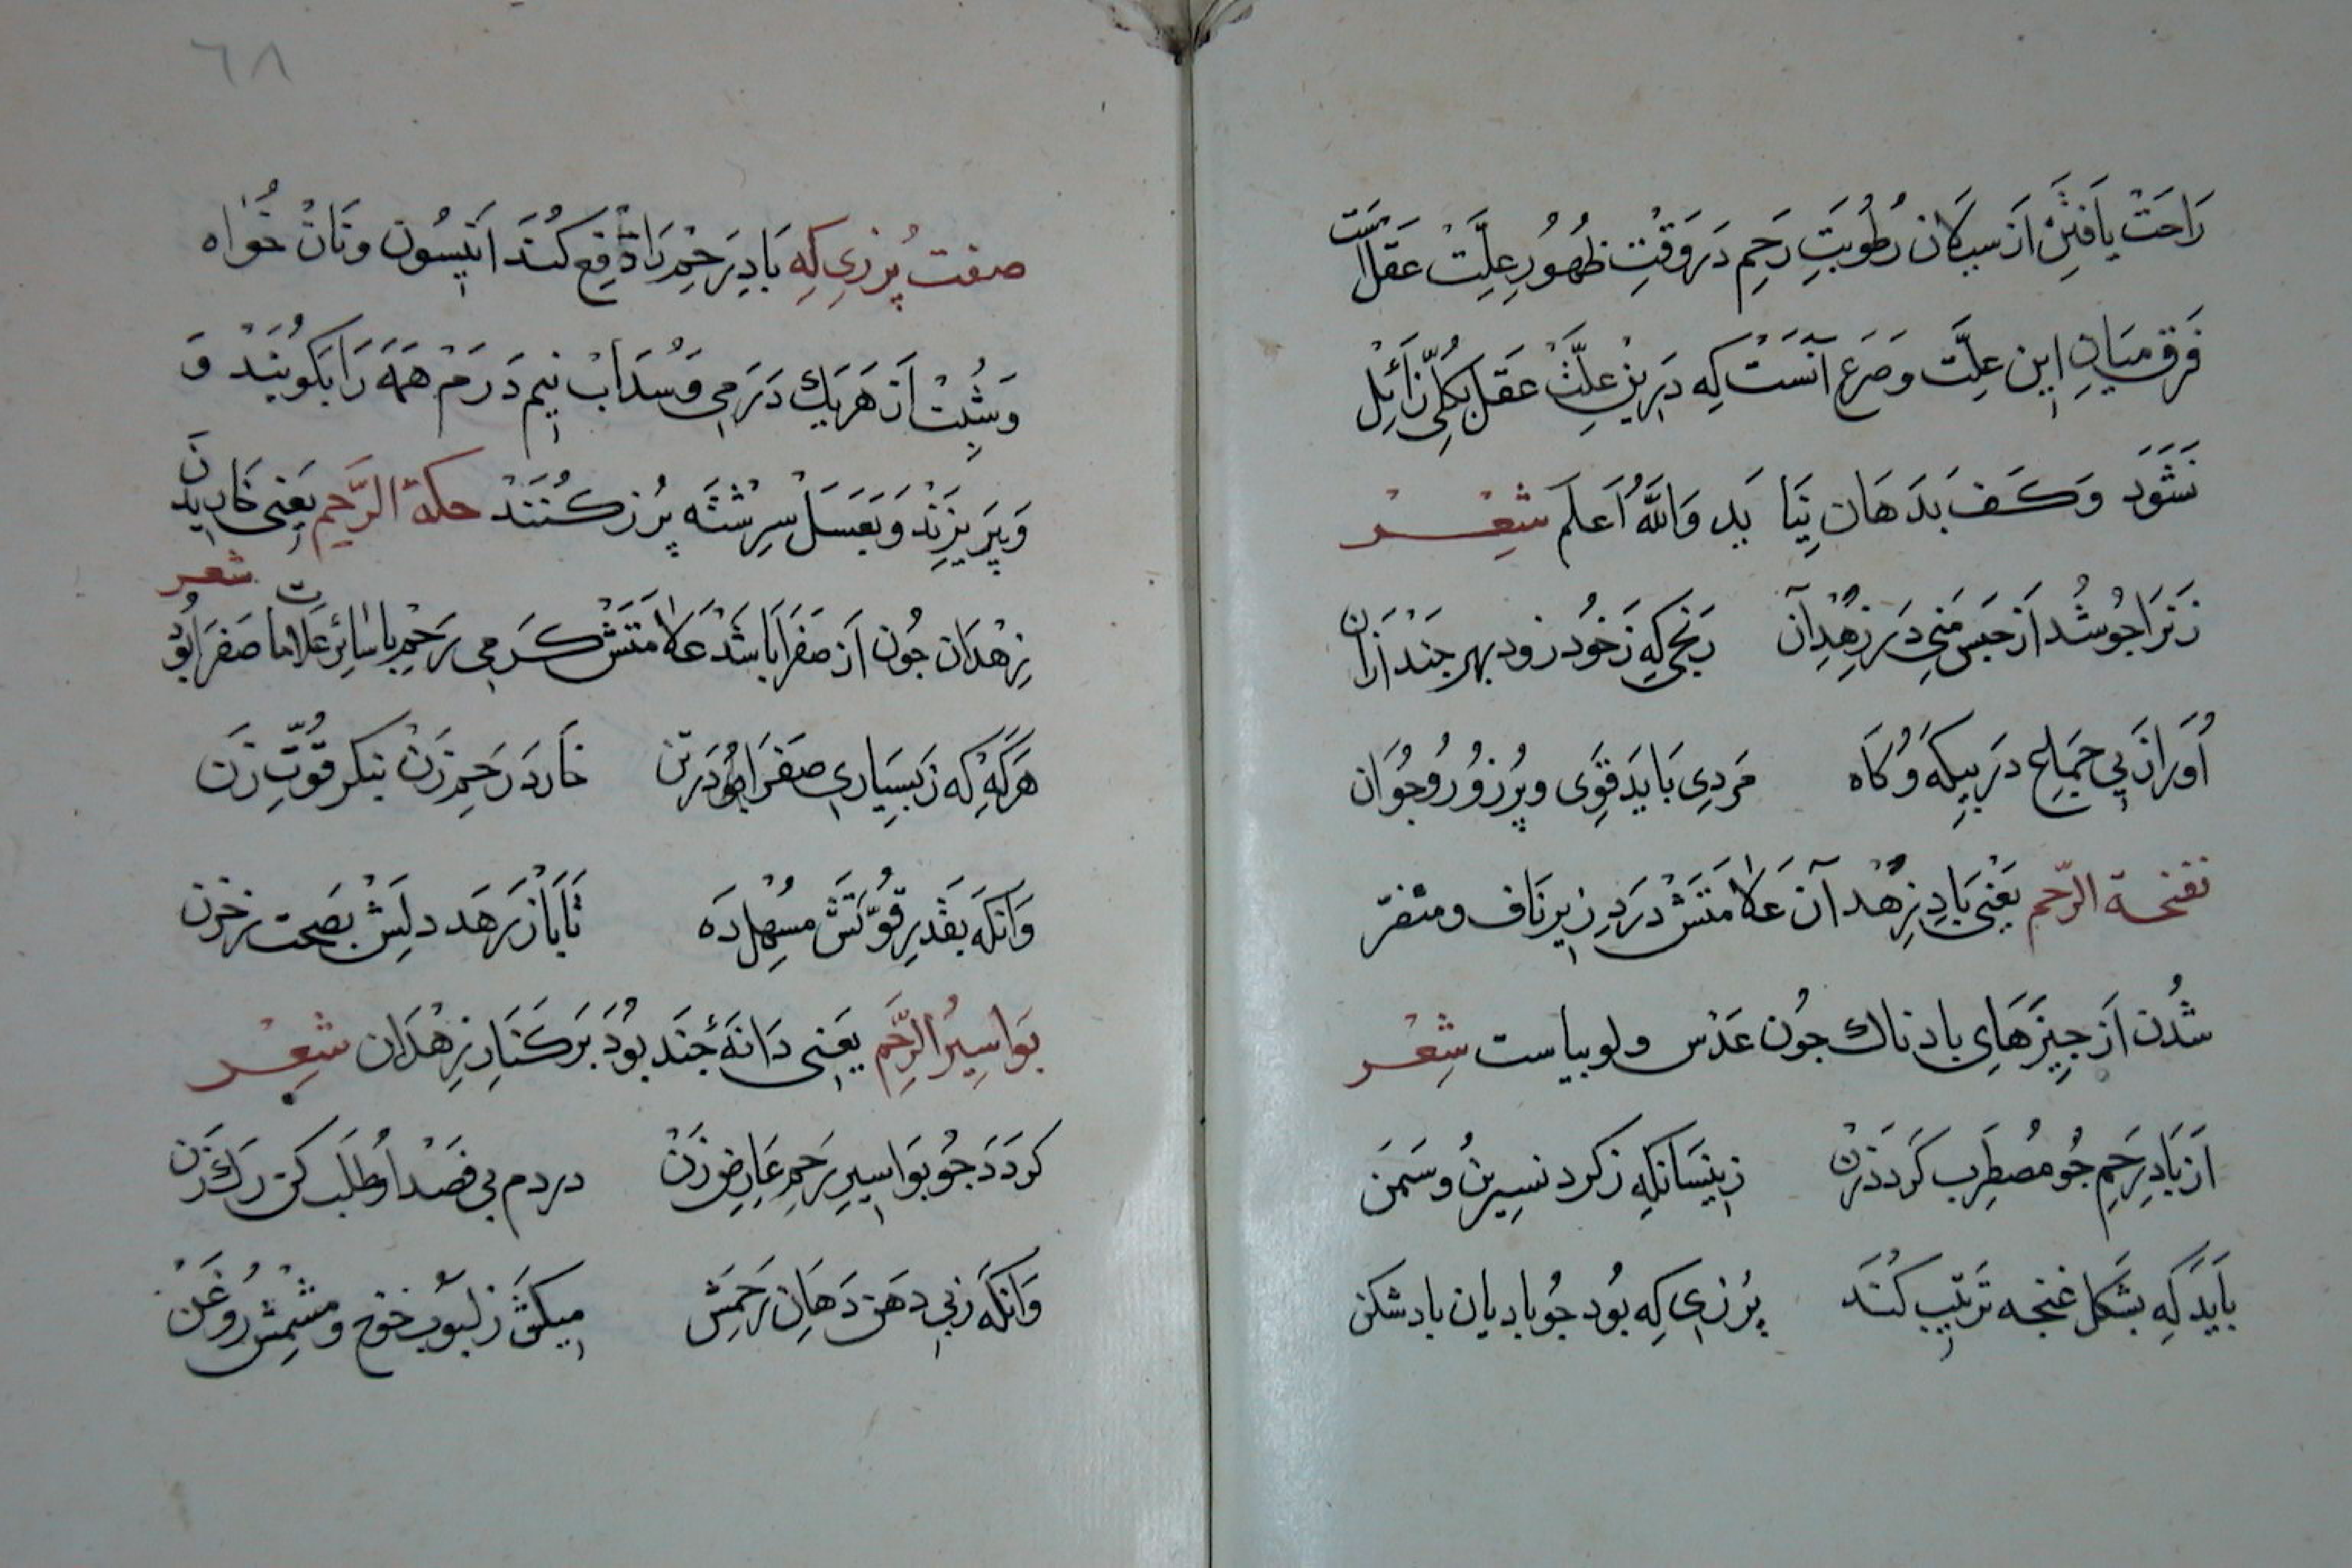 رَاحَتْ يَافتَنْ اَز سيلَان رُطُوبَتِ رَحِم دَر وَقْتِ ظُهُورِ عِلَّتْ عَقل اَسْت
فَرق مِيَانِ اِين عِلَّت و صَرَع آنَسْت كِه دَر اِين عِلَّتْ عَقل بَكُلِّى زَائِل
نَشَوَد وَكَف بَدَهَان نِيَا يَد وَاللهُ اَعلَم شِعْر
زَنرَا جُو شُد اَز حَبس مَنى دَر زِهْدَان رَنجى كِه زَخُود رَود بهر جَند اَزَان
اُورَا زَپى جِمَاع دَر بِيكَه وُكَاه مَردِى بَايَد قَوِى و پُر زُور و جُوَان
نفخة الرّحم يَعْنى بَادِ زِهْدَان عَلَامَتَش دَرَدِ زير نَاف و متضرّر
شُدن اَز چِيزهَاى باد ناك جُون عَدَس و لوبياست شِعْر
اَز بَادِ رَحِم جُو مُضطَرِب كَردَد زَن زِينسَانكِه زكرد نسرين و سَمَن
بَايَد كِه بشَكل غنجه تَرتيب كُنَد پُرزى كِه بُوَد جُو باديان باد شكن
٦٨
صفت پُرزى كِه بَادِ رَحِم رَا دَفِع كُنَد اَنيسُون و نَانْ خُوَاه
وَشِبِتْ اَز هَر يَك دَرَمِى وَ سُدَابْ نِيم دَرَمْ هَمَه رَا بَكُوبَنَدْ وَ
وَ بِپَر يزَنْد وَ بَعَسَلْ سِرِشْتَه پُرز كُنَنَدْ حكة الرَّحِم يَعنى خَارِيدَن
زِهْدَان جُون اَز صَفرَا بَاشَد عَلَامَتَش كَرمِى رَحِم با سَائِر عَلَامات صَفرَا بُوَد شعر
هَركَه كِه زبسيَارِى صَفرَا بُوَد دَر تن خَارَد رَحِم زَنْ بنكر قُوَّتِ زَن
وَانكَه بقَدرِ قُوَّتَش مُسْهِل دَه تَا بَاز رَهَد دِلَش بصحت ز حَزَن
بَواسِيرُ الرَّحِم يَعنى دَانَهٔ جَند بُوَد بَر كَنَارِ زِهْدَان شِعْر
كردَد جُو بَوَاسِير رَحِم عَارِض زَن دردم پى فَصْد او طَلَب كن رَك زَن
وَانكَه زپى دهن دَهَانِ رَحِمَش ميكَش زلبُوب خوخ و مِشْمِش رُوغَن